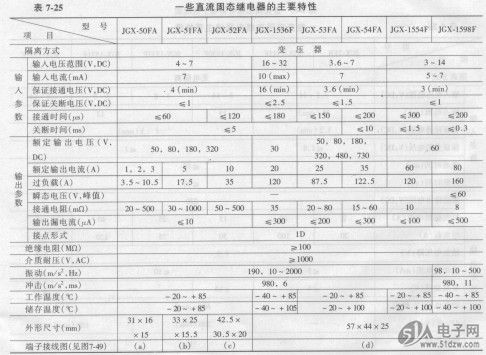 表 7-25 一些直流固态继电器的主要特性
型号 项目 JGX-50FA JGX-51FA JGX-52FA JGX-1536F JGX-53FA JGX-54FA JGX-1554F JGX-1598F
隔离方式 变压器
输入参数
输入电压范围(V,DC) 4~7 16~32 3.6~7 3~14
输入电流(mA) 7 10(max) 7 5~7
保证接通电压(V,DC) 4(min) 16(min) 3.6(min) 3(min)
保证关断电压(V,DC) ≤1 ≤2.5 ≤1.5 ≤1
接通时间(μs) ≤60 ≤120 ≤180 ≤150 ≤200 ≤300 ≤200
关断时间(ms) ≤5 ≤10 ≤1.5 ≤0.3
输出参数
额定输出电压(V,DC) 50,80,180,320 30 50,80,180,320,480,730 60
额定输出电流(A) 1,2,3 5 10 20 25 35 60 80
过负载(A) 3.5~10.5 17.5 35 120 87.5 122.5 120 160
瞬态电压(V,峰值) — ≤60
接通电阻(mΩ) 20~500 30~1000 50~500 35 20~80 15~60 10 8
输出漏电流(μA) ≤10 ≤300 ≤200 ≤300 ≤100 ≤500
接点形式 1D
绝缘电阻(MΩ) ≥100
介质耐压(V,AC) ≥1000
振动(m/s²,Hz) 190,10~2000 98,10~500
冲击(m/s²,ms) 980,6 980,11
工作温度(℃) -20~+85 -40~+85 -20~+85 -20~+85 -40~+85
储存温度(℃) -20~+85 -40~+105 -20~+100 -20~+100 -40~+100
外形尺寸(mm) 31×16×15 33×25×15.5 42.5×30.5×20 57×44×25
端子接线图(见图7-49) (a) (b) (c) (d)
电子网
www.51dzw.com